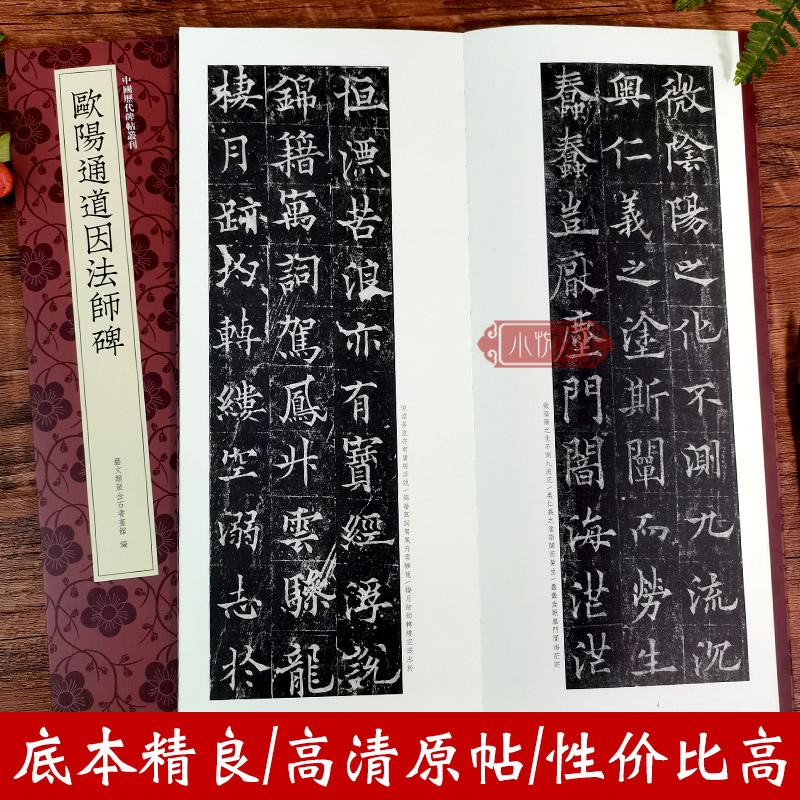 中國歷代碑帖叢刊
歐陽通道因法師碑
藝文類聚金石書畫館 編
微陰陽之化不測九流沉
奧仁義之塗斯闡而勞生
蠢蠢豈厭塵門闇海茫茫
小悅
4
恒漂苦浪亦有寶經浮說
錦籍寓詞駕鳳升雲驂龍
棲月跡均轉縷空溺志於
底本精良/高清原帖/性价比高